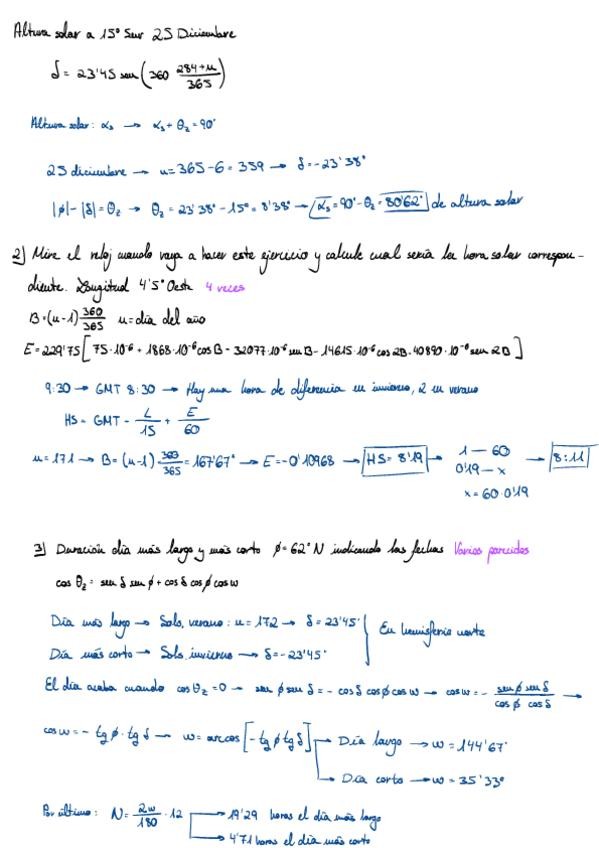 Altura solar a 15° Sur 25 Diciembre
δ = 23'45 sen (360 (284+n)/365)
Altura solar: αs → αs + θz = 90°
25 diciembre → n = 365 - 6 = 359 → δ = -23'38°
|ϕ| - |δ| = θz → θz = 23'38° - 15° = 8'38° → αs = 90° - θz = 80'62° de altura solar
2) Mire el reloj cuando vaya a hacer este ejercicio y calcule cual sería la hora solar correspon-
diente. Longitud 4'5° Oeste 4 veces
B = (n-1) 360/365 n = día del año
E = 229'75 [75·10⁻⁶ + 1868·10⁻⁶ cos B - 32077·10⁻⁶ sen B - 14615·10⁻⁶ cos 2B - 40890·10⁻⁶ sen 2B]
9:30 → GMT 8:30 → Hay una hora de diferencia en invierno, 2 en verano
HS = GMT - L/15 + E/60
n = 171 → B = (n-1) 360/365 = 167'67° → E = -0'10968 → HS = 8'19 → 1 — 60 → 8:11
0'19 — x
x = 60·0'19
3) Duración día más largo y más corto ϕ = 62° N indicando las fechas Varios parecidos
cos θz = sen δ sen ϕ + cos δ cos ϕ cos w
Día más largo → Sols. verano: n = 172 → δ = 23'45° En hemisferio norte
Día más corto → Sols. invierno → δ = -23'45°
El día acaba cuando cos θz = 0 → sen ϕ sen δ = - cos δ cos ϕ cos w → cos w = - (sen ϕ sen δ)/(cos ϕ cos δ) →
cos w = - tg ϕ · tg δ → w = arccos [-tg ϕ tg δ] → Día largo → w = 144'67°
→ Día corto → w = 35'33°
Por último: N = 2w/180 · 12 → 19'29 horas el día más largo
→ 4'71 horas el día más corto